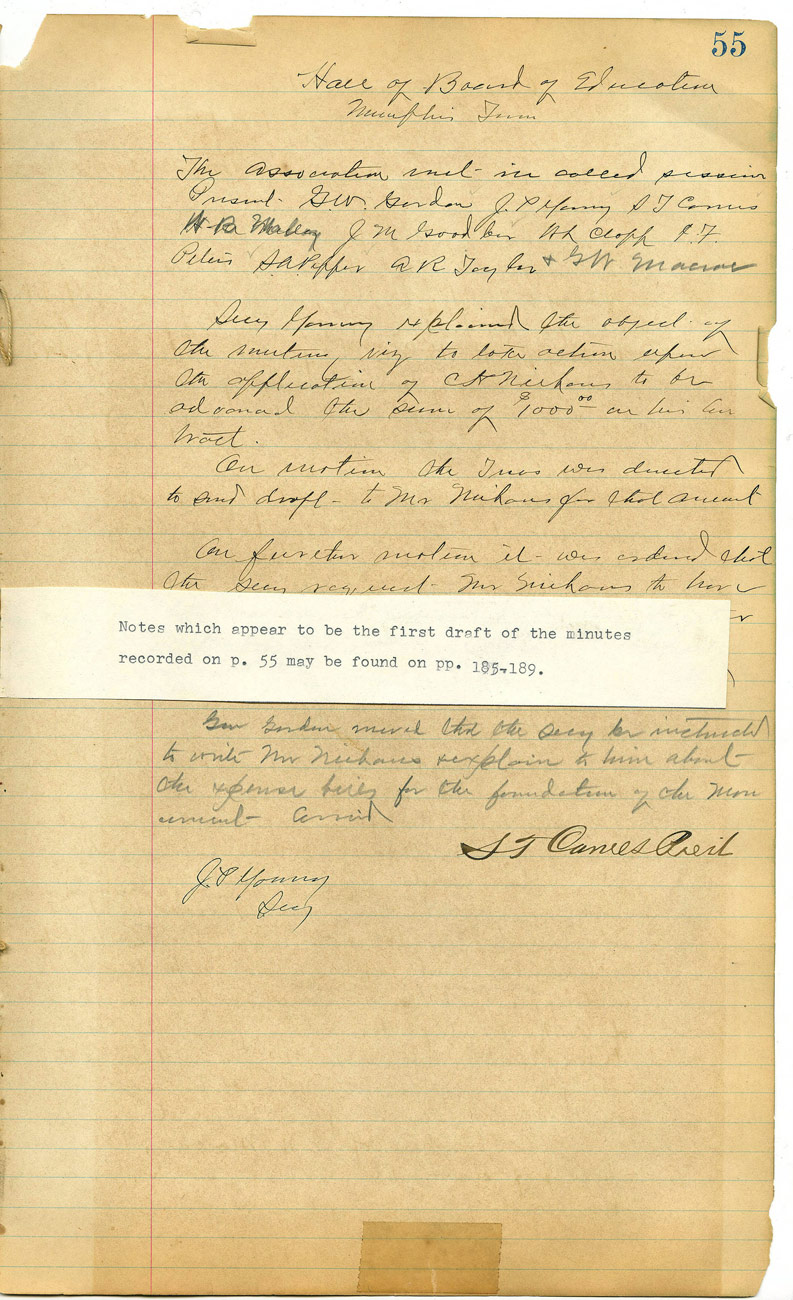 55
Hall of Board of Education
Memphis Tenn
The Association met in called session
Present G.W. Gordon J.P. Young S T Carnes
J M Goodbar W L Clapp I. F.
Peters S A Pepper A R Taylor + G W Macrae
Secy Young explained the object of
the meeting, viz to take action upon
the application of C H Niehaus to be
advanced the sum of $1000 00 on his con
tract.
On motion the Treas was directed
to send draft to Mr Niehaus for that amount
On further motion it was ordered that
the Secy request Mr Niehaus to have
Notes which appear to be the first draft of the minutes
recorded on p. 55 may be found on pp. 185-189.
Gen Gordon moved that the Secy be instructed
to write Mr Niehaus & explain to him about
the expense for the foundation of the Mon
ument Carried
S T Carnes Presit
J. P Young
Secy